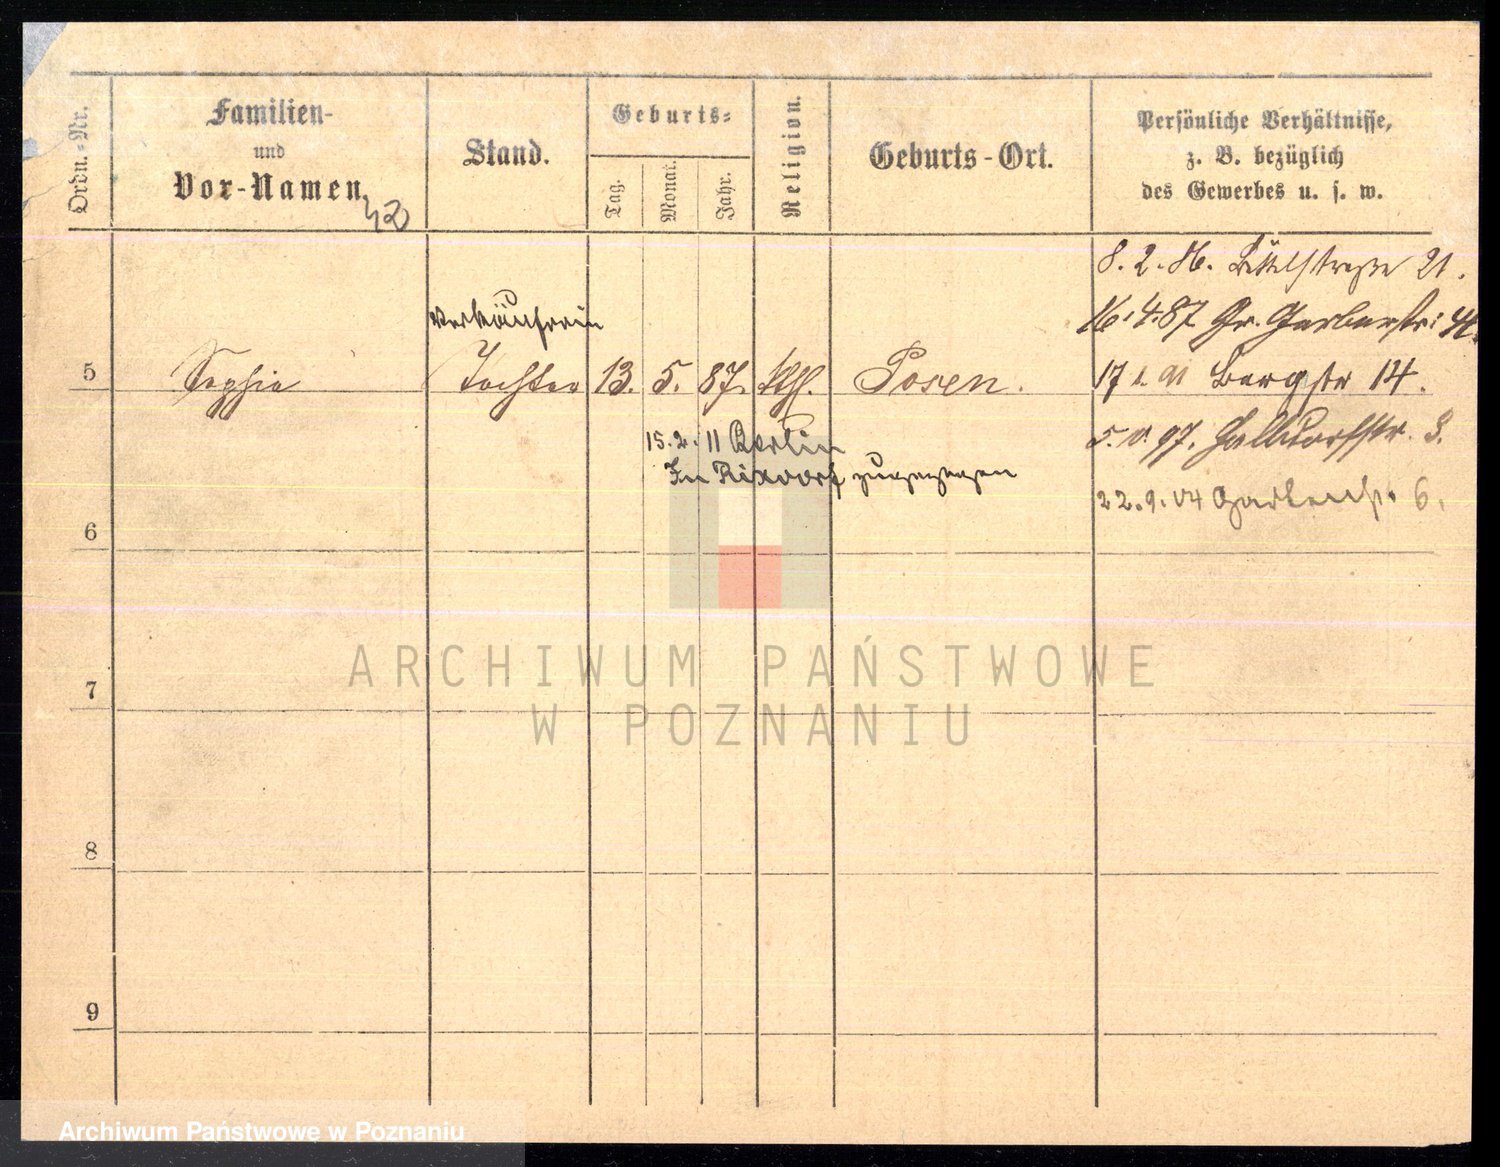 Ordn.-Nr.
Familien-
und
Vor-Namen
Stand.
Geburts-
Tag.
Monat.
Jahr.
Religion.
Geburts-Ort.
Persönliche Verhältnisse,
z. B. bezüglich
des Gewerbes u. s. w.
8. 2. 86. 21.
16. 4. 87 Gr. Gerberstr.
Verkäuferin
5 Sophie Tochter 13. 5. 87. Posen.
17 Bergstr 14.
15. 2. 11 Berlin
In Rixdorf zugezogen
97. Halbdorfstr. 3.
22. 9. 04 Gartenstr. 6.
6
7
8
9
ARCHIWUM PAŃSTWOWE
W POZNANIU
Archiwum Państwowe w Poznaniu